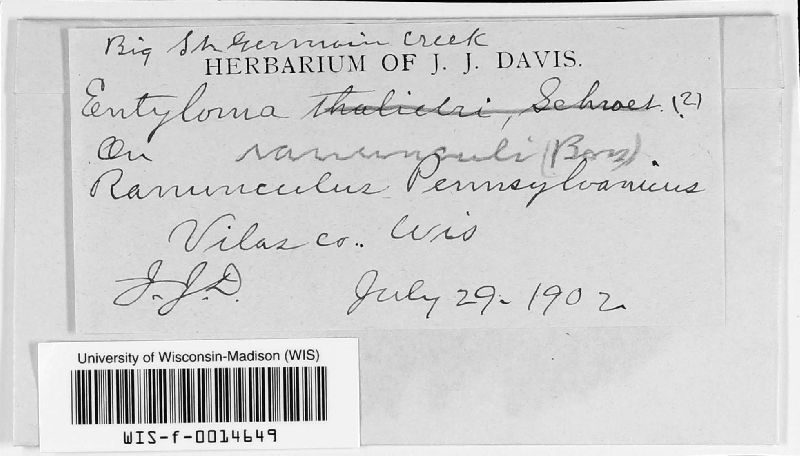 Big St Germain Creek
HERBARIUM OF J. J. DAVIS.
Entyloma thalictri, Schroet. (?)
On ranunculi (Bon)
Ranunculus Pennsylvanicus
Vilas co.. Wis
J.J.D. July 29-1902
University of Wisconsin-Madison (WIS)
WIS-f-0014649